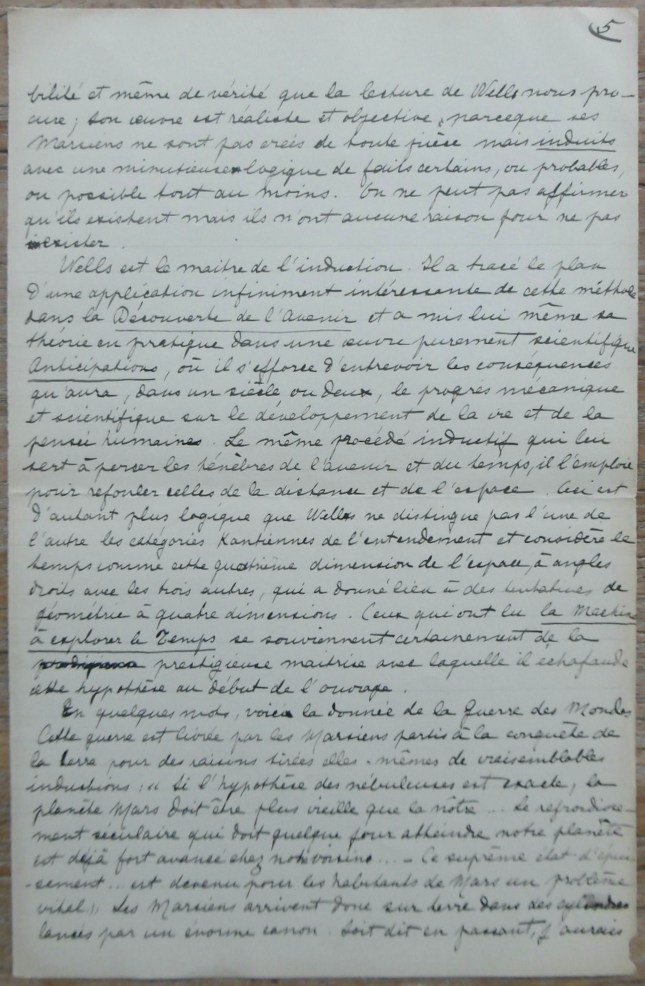 5
bilité et même de vérité que la lecture de Wells nous pro-
cure; son œuvre est réaliste et objective, parceque ses
Marsiens ne sont pas créés de toute pièce mais induits
avec une minutieuse logique de faits certains, ou probables,
ou possible tout au moins. On ne peut pas affirmer
qu'ils existent mais ils n'ont aucune raison pour ne pas
exister.
Wells est le maitre de l'induction. Il a tracé le plan
d'une application infiniment intéressante de cette méthode
dans la Découverte de l'Avenir et a mis lui même sa
théorie en pratique dans une œuvre purement scientifique
Anticipations, où il s'efforce d'entrevoir les conséquences
qu'aura, dans un siècle ou deux, le progrès mécanique
et scientifique sur le développement de la vie et de la
pensée humaines. Le même procédé inductif qui lui
sert à percer les ténèbres de l'avenir et du temps, il l'emploie
pour refouler celles de la distance et de l'espace. Ceci est
d'autant plus logique que Wells ne distingue pas l'une de
l'autre les catégories Kantiennes de l'entendement et considère le
temps comme cette quatrième dimension de l'espace, à angles
droits avec les trois autres, qui a donné lieu à des tentatives de
géométrie à quatre dimensions. Ceux qui ont lu la Machine
à explorer le Temps se souviennent certainement de la
prestigieuse maitrise avec laquelle il échafaude
cette hypothèse au début de l'ouvrage.
En quelques mots, voici la donnée de la Guerre des Mondes
Cette guerre est livrée par les Marsiens partis à la conquête de
la terre pour des raisons tirées elles-mêmes de vraisemblables
inductions: "Si l'hypothèse des nébuleuses est exacte, la
planète Mars doit être plus vieille que la nôtre... Le refroidisse-
ment séculaire qui doit quelque jour atteindre notre planète
est déjà fort avancé chez notre voisine.... Ce suprême état d'épui-
-sement.. est devenu pour les habitants de Mars un problème
vital" Les Marsiens arrivent donc sur terre dans des cylindres
lancés par un énorme canon. Soit dit en passant, j'aurais